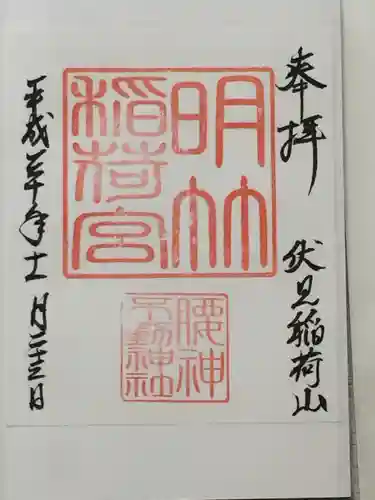 奉拝
伏見稲荷山
明竹
稲荷宮
腰神
不動神社
平成三十年十一月二十三日